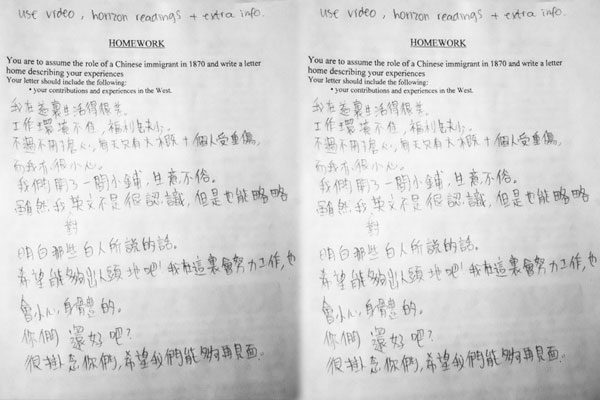 use video, horizon readings + extra info.
HOMEWORK
You are to assume the role of a Chinese immigrant in 1870 and write a letter
home describing your experiences
Your letter should include the following:
• your contributions and experiences in the West.
我在這裏生活得很苦。
工作環境不佳,福利缺少。
不過不用擔心,每天只有大概十個人受重傷,
而我亦很小心。
我們開了一間小鋪,生意不俗。
雖然我英文不是很認識,但是也能略略
對
明白那些白人所說的話。
希望能夠出人頭地吧!我在這裏會努力工作,也
會小心身體的。
你們還好吧?
很掛念你們,希望我們能夠再見面。
use video, horizon readings + extra info.
HOMEWORK
You are to assume the role of a Chinese immigrant in 1870 and write a letter
home describing your experiences
Your letter should include the following:
• your contributions and experiences in the West.
我在這裏生活得很苦。
工作環境不佳,福利缺少。
不過不用擔心,每天只有大概十個人受重傷,
而我亦很小心。
我們開了一間小鋪,生意不俗。
雖然我英文不是很認識,但是也能略略
對
明白那些白人所說的話。
希望能夠出人頭地吧!我在這裏會努力工作,也
會小心身體的。
你們還好吧?
很掛念你們,希望我們能夠再見面。